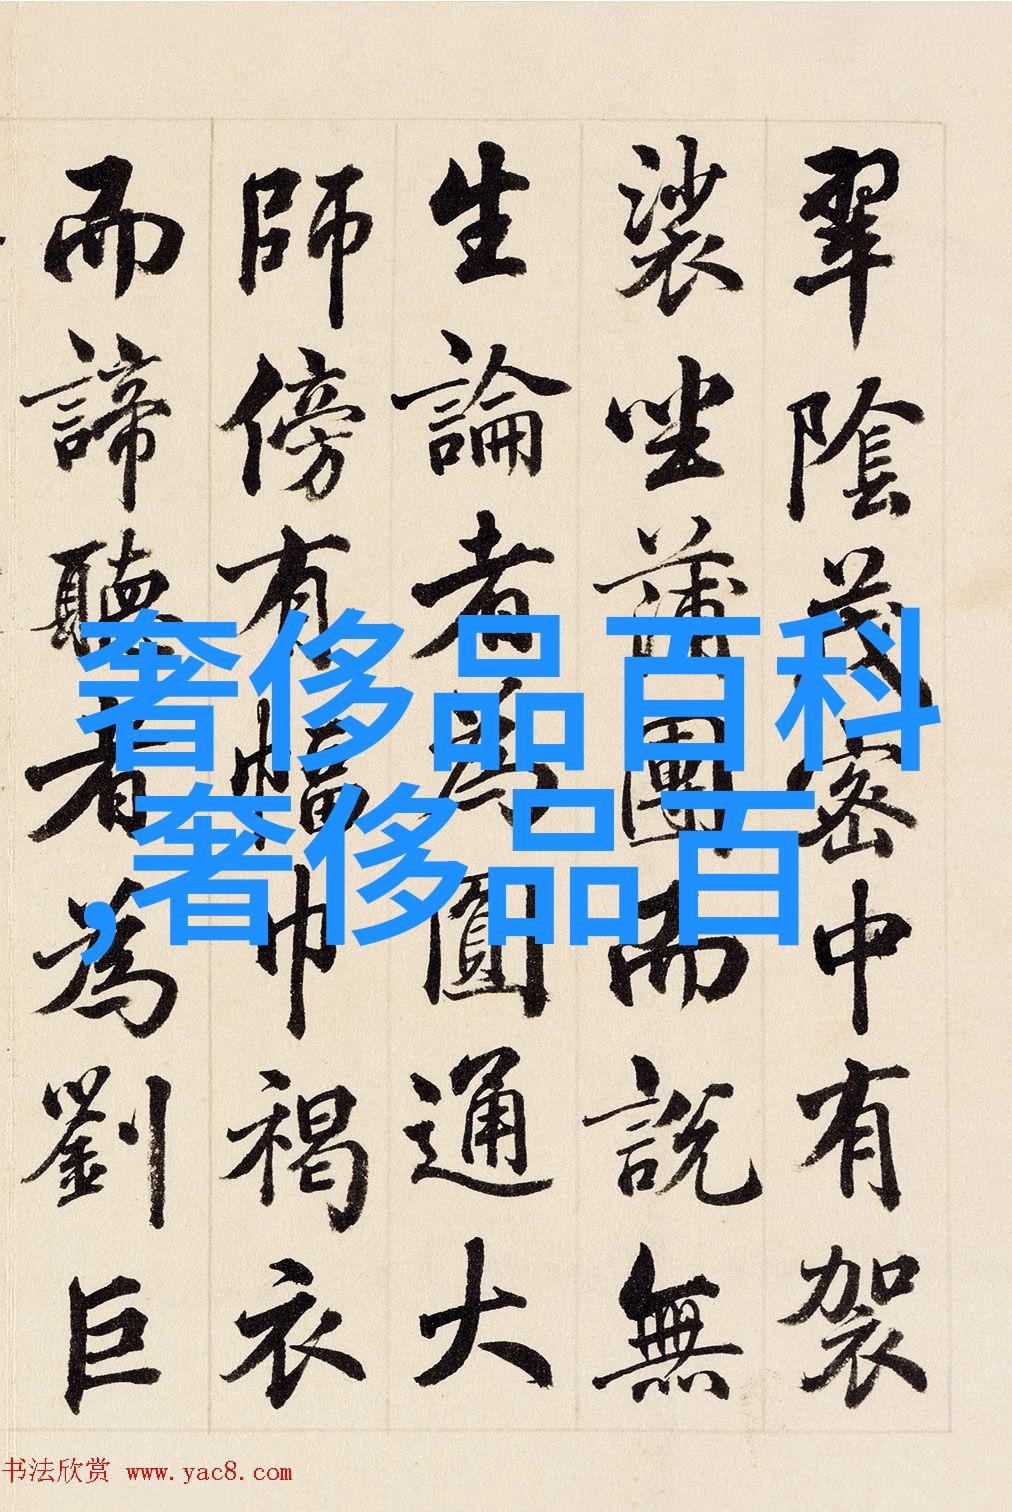 翠陰茂密中有袈
裟坐蒲團而說無
生論者為圓通大
師傍有幅巾褐衣
而諦聽者為劉巨
奢侈品百科
,奢侈品百
书法欣赏 www.yac8.com